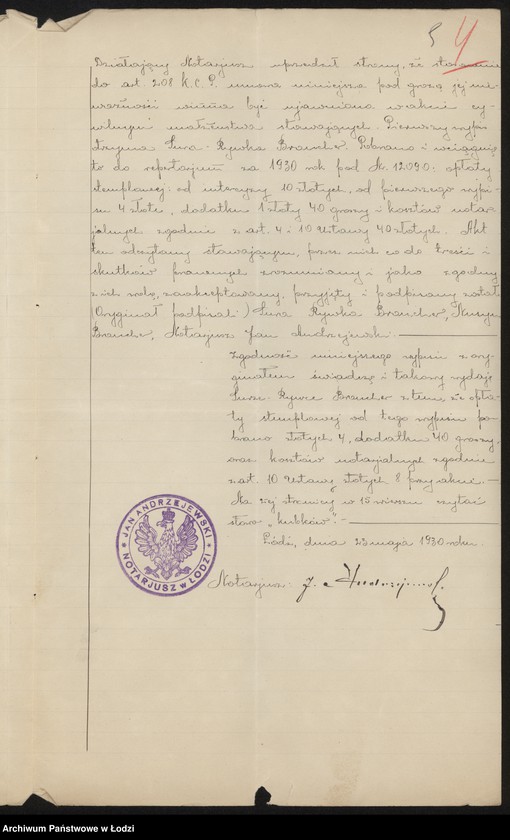 5 4
Działający Notarjusz uprzedził strony, że stosownie
do art. 208 K.C.P. umowa niniejsza pod grozą jej nie
ważności winna być ujawniona w akcie cy-
wilnym małżeństwa stawających. Pierwszy wypis
otrzyma Sura-Rywka Braucher. Pobrano i wciągnię
to do repertorjum za 1930 rok pod № 1209o: opłaty
stemplowej: od intercyzy 10 złotych, od pierwszego wypi-
su 4 złote, dodatku 1 złoty 40 groszy i kosztów notar-
jalnych zgodnie z art. 4 i 10 Ustawy 40 złotych. Akt
ten odczytany stawającym, przez nich co do treści i
skutków prawnych zrozumiany i jako zgodny
z ich wolą, zaakceptowany, przyjęty i podpisany został
(Oryginał podpisali:) Sura Rywka Braucher,
Braucher, Notarjusz Jan Andrzejewski.
Zgodność niniejszego wypisu z ory-
ginałem świadczę i takowy wydaję
Surze-Rywce Braucher z tem, że opła-
ty stemplowej od tego wypisu po-
brano złotych 4, dodatku 40 groszy,
oraz kosztów notarjalnych zgodnie
z art. 10 Ustawy złotych 8 przy akcie.—
Na 2ej stronicy w 15 wierszu czytać
słowo „kubków".—
Łódź, dnia 23 maja 1930 roku.
Notarjusz: J. Andrzejewski
JAN ANDRZEJEWSKI
NOTARJUSZ w ŁODZI
Archiwum Państwowe w Łodzi